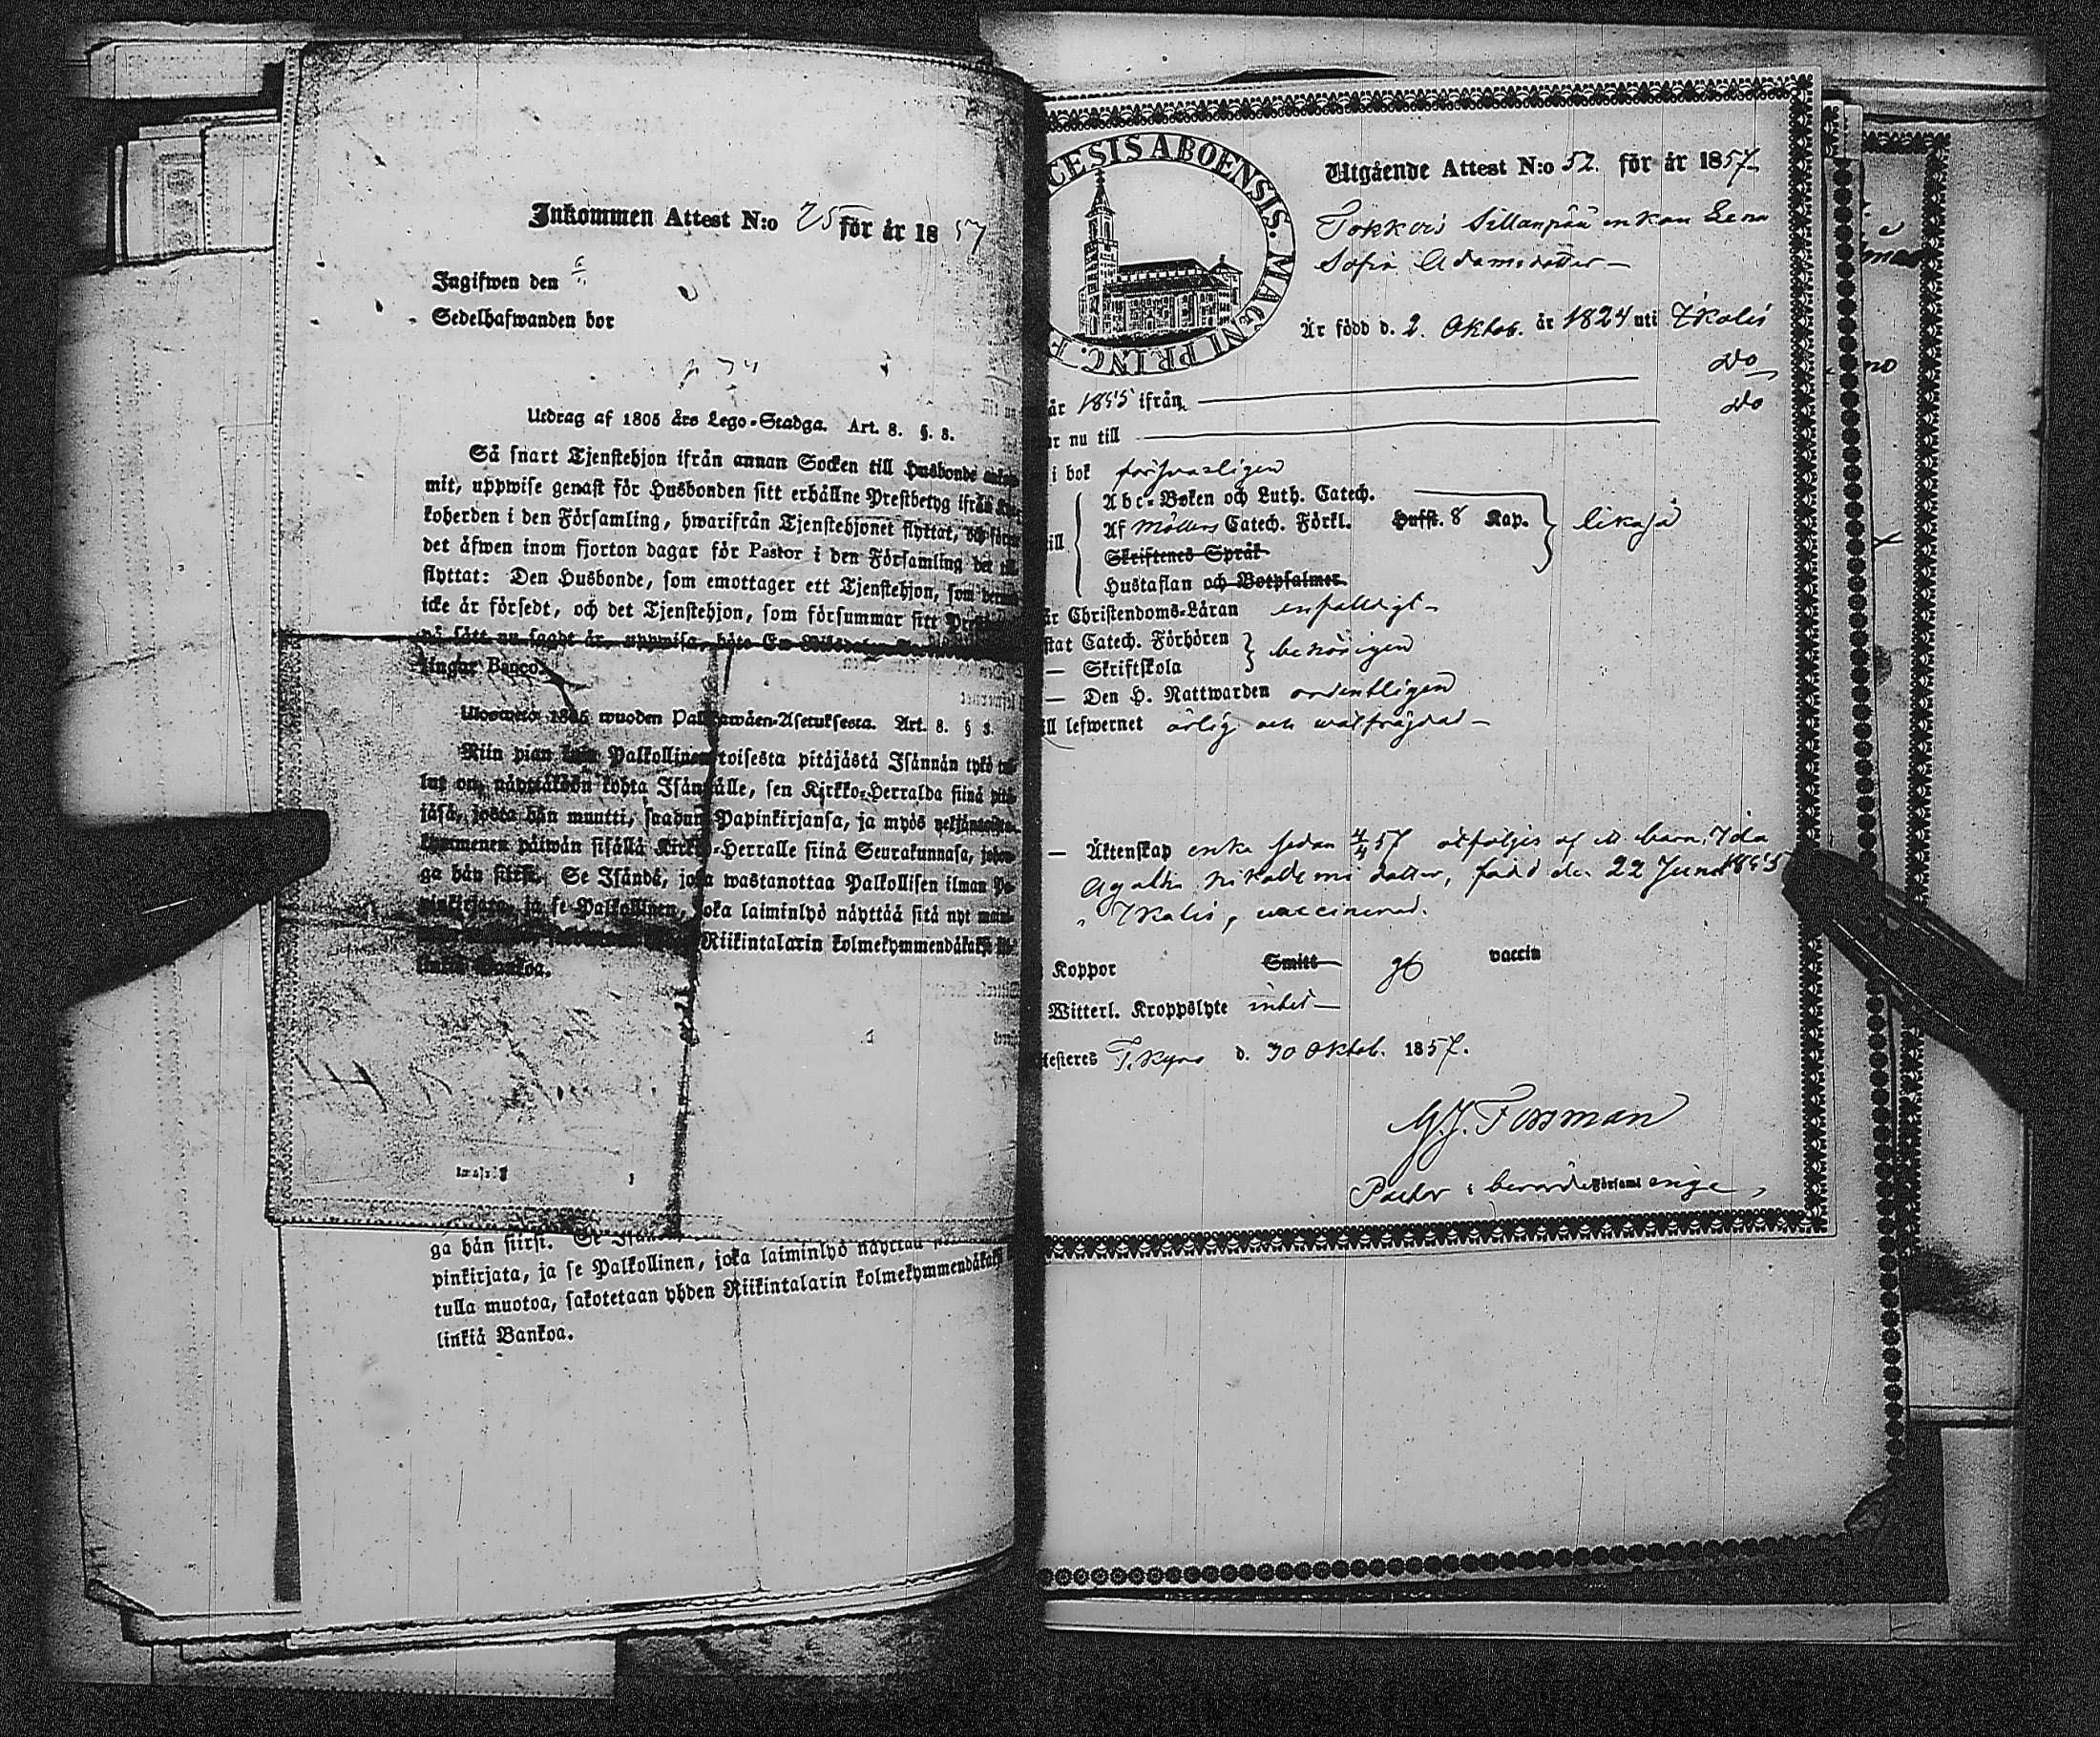 Inkommen Attest N:o 25 för år 18 57
Ingifwen den
Sedelhafwanden bor
Utdrag af 1805 års Lego-Stadga. Art. 8. §. 3.
Så snart Tjenstehjon ifrån annan Socken till Husbonde
mit, uppwise genast för Husbonden sitt erhållne Prestbetyg ifrån
koherden i den Församling, hwarifrån Tjenstehjonet flyttat, och
det åfwen inom fjorton dagar för Pastor i den Församling det
flyttat: Den Husbonde, som emottager ett Tjenstehjon, som
icke är försedt, och det Tjenstehjon, som försummar sitt
på sätt nu sagdt är, uppwisa, böte En
lingar Banco.
Ulosweto 1805 wuoden Palkkawäen-Asetuksesta. Art. 8. § 3.
Niin pian kuin Palkollinen toisesta pitäjästä Isännän tykö
lut on, näyttäköön kohta Isännälle, sen Kirkko-Herralda siinä
jäsä, josta hän muutti, saadun Papinkirjansa, ja myös
kymmenen päiwän sisällä Kirkko-Herralle siinä Seurakunnasa,
ga hän siirsi. Se Isändä, joka wastanottaa Palkollisen ilman
pinkirjata, ja se Palkollinen, joka laiminlyö näyttää sitä nyt
Riikintalarin kolmekymmendäkaksi
linkiä Bankoa.
ga hän siirsi. Se
pinkirjata, ja se Palkollinen, joka laiminlyö näyttää
tulla muotoa, sakotetaan yhden Riikintalarin kolmekymmendäkaksi
linkiä Bankoa.
CESIS ABOENSIS. MAGNI PRINC. F
Utgående Attest N:o 52. för år 1857.
Sillanpää enkan Lena
Sofia Adamsdotter
Är född d. 2. Oktob. år 1824 uti Ikalis
år 1855 ifrån do
r nu till do
i bok försvarligen
Abc-Boken och Luth. Catech.
Af Möllers Catech. Förkl. Hufst. 8 Kap. likaså
Skriftenes Språk
Hustaflan och Botpsalmer
är Christendoms-Läran enfaldigt
stat Catech. Förhören behörigen
— Skriftskola
— Den H. Nattwarden ordentligen
ill lefwernet ärlig och wälfrejdad
— Äktenskap enka sedan 4/4 57 åtföljes af ett barn, Ida
Agatha Nikodemi dotter, född den 22 Juni 1855
i Ikalis, vaccinerad.
Koppor Smitt gt vaccin
Witterl. Kroppslyte intet
testeres T. Kyro d. 30 Oktob. 1857.
G. J. Forsman
Pastor i berörde Församl